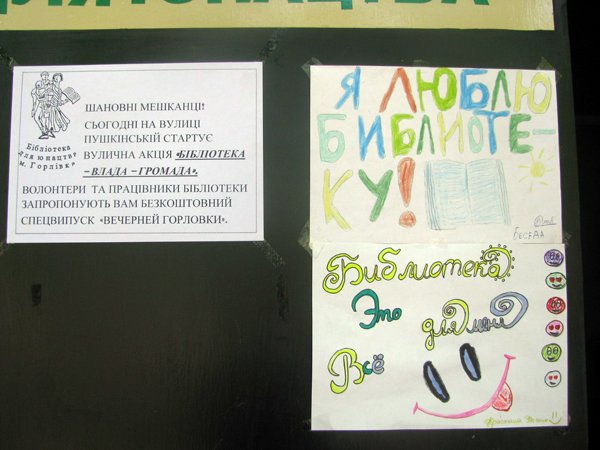 ДЛЯ ЮНАЦТВА
Бібліотека
для юнацтва
м. Горлівк
ШАНОВНІ МЕШКАНЦІ!
СЬОГОДНІ НА ВУЛИЦІ
ПУШКІНСЬКІЙ СТАРТУЄ
ВУЛИЧНА АКЦІЯ «БІБЛІОТЕКА
– ВЛАДА – ГРОМАДА».
ВОЛОНТЕРИ ТА ПРАЦІВНИКИ БІБЛІОТЕКИ
ЗАПРОПОНУЮТЬ ВАМ БЕЗКОШТОВНИЙ
СПЕЦВИПУСК «ВЕЧЕРНЕЙ ГОРЛОВКИ».
Я ЛЮБЛЮ
БИБЛИОТЕ-
КУ!
БЕСЕДА
Библиотека
Это для меня
Всё